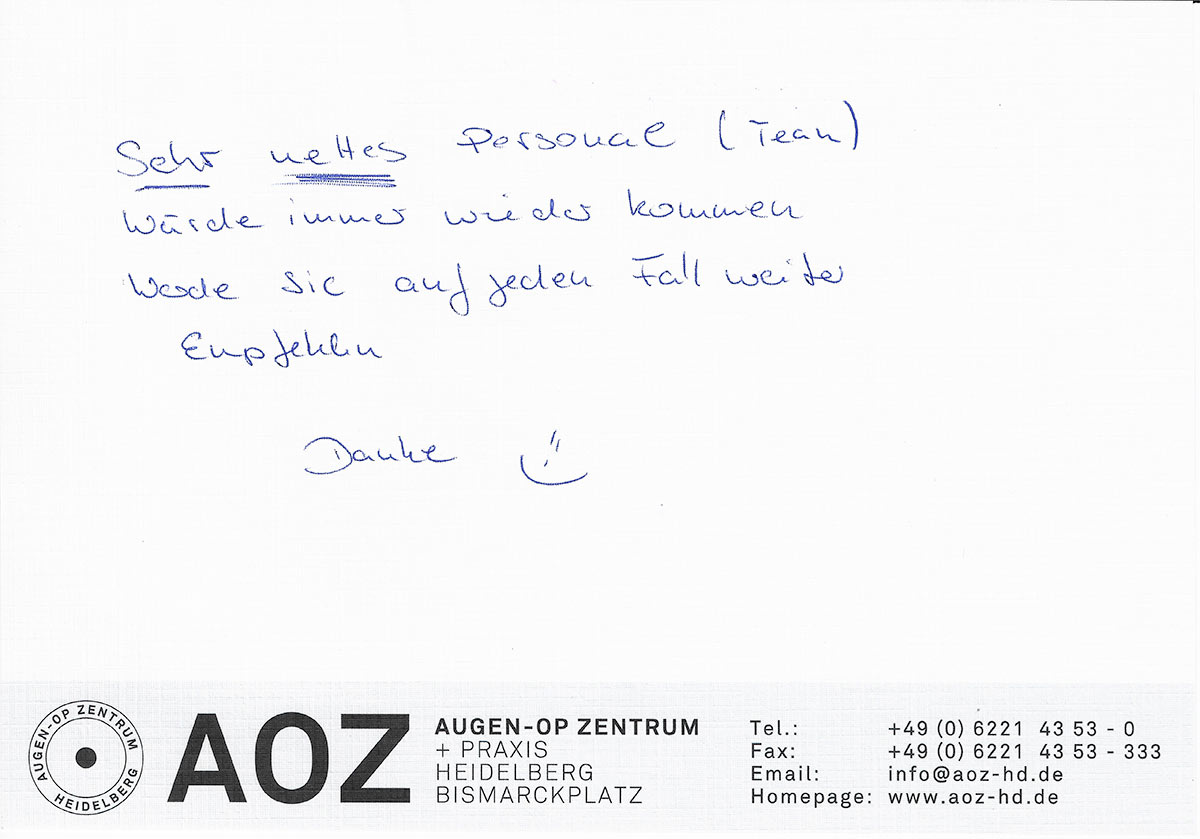 Sehr nettes Personal (Team)
Würde immer wieder kommen
Werde Sie auf jeden Fall weiter
Empfehlen
Danke
AUGEN-OP ZENTRUM
HEIDELBERG
AOZ
AUGEN-OP ZENTRUM
+ PRAXIS
HEIDELBERG
BISMARCKPLATZ
Tel.: +49 (0) 6221 43 53 - 0
Fax: +49 (0) 6221 43 53 - 333
Email: info@aoz-hd.de
Homepage: www.aoz-hd.de